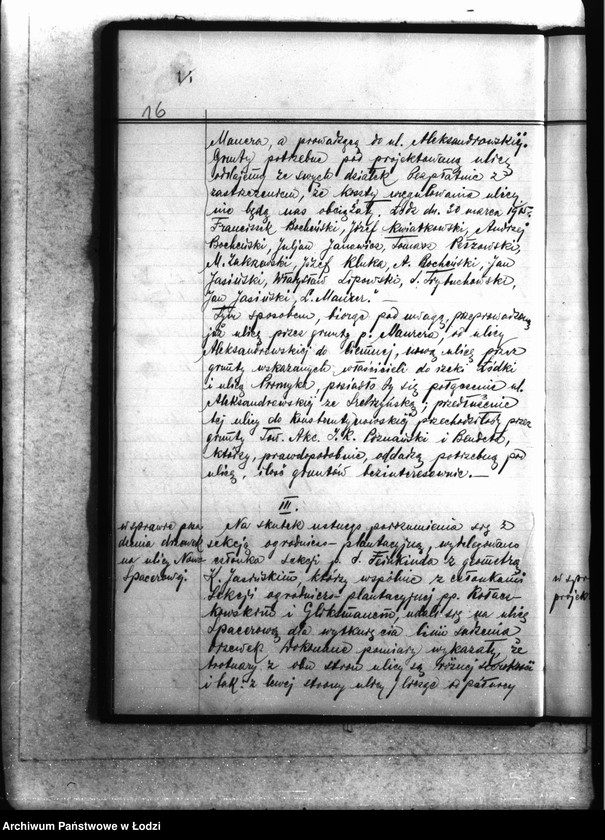 16
Maurera, a prowadzącą do ul. Aleksandrowskiej.
Grunty potrzebne pod projektowaną ulicę
oddajemy ze swych działek bezpłatnie z
zastrzeżeniem, że koszty uregulowania ulicy
nie będą nas obciążały. Łódź dn. 20 marca
Franciszek Bocheński, Józef Kwiatkowski, Andrzej
Bocheński, Juljan Janowicz, Tomasz
M. Zakrzewski, Józef Klutka, A. Bocheński, Jan
Jasiński, Władysław Lipowski, S. Trybuchowski,
Jan Jasiński, L. Maurer." —
Tym sposobem, biorąc pod uwagę, przeprowadzoną
już ulicę przez grunty p. Maurera, od ulicy
Aleksandrowskiej do Ciemnej, nową ulicę przez
grunty wskazanych właścicieli do rzeki Łódki
i ulicę Promyka, posiadło by się połączenie ul.
Aleksandrowskiej ze Srebrzyńską; przedłużenie
tej ulicy do Konstantynowskiej przechodziłoby przez
grunty Tow. Akc. I. K. Poznański i
którzy, prawdopodobnie, oddadzą potrzebną pod
ulicę, ilość gruntów bezinteresownie. —
III.
w sprawie
dzenia drzewek
na ulicy Nowo-
Spacerowej.
Na skutek ustnego porozumienia się z
sekcją ogrodniczo-plantacyjną, wydelegowano
członka Sekcji p. S. Fiszkinda z geometrą
K. Jasińskim, którzy wspólnie z członkami
Sekcji ogrodniczo-plantacyjnej pp. Kołacz-
kowskim i Gliksmanem, udali się na ulicę
Spacerową dla wytknięcia linii sadzenia
drzewek. Dokonane pomiary wykazały, że
trotuary z obu stron ulicy są różnej szerokości
i tak: z lewej strony ulicy / licząc od północy
w spra
projek
Archiwum Państwowe w Łodzi